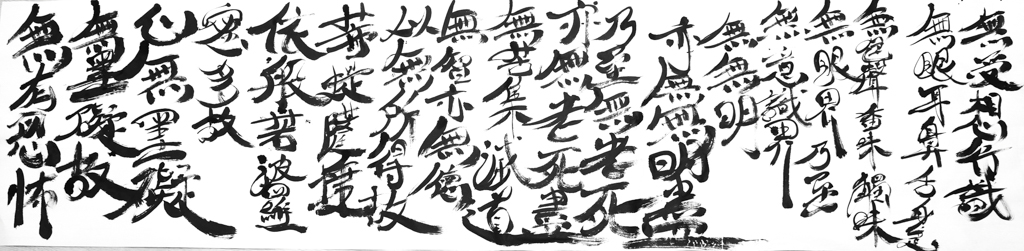 無受想行識
無眼耳鼻舌身意
無色聲香味觸味
無眼界乃至
無意識界
無無明
亦無無明盡
乃至無老死
亦無老死盡
無苦集滅道
無智亦無德
以無所得故
菩提薩埵
依般若波羅蜜
多故
心無罣礙
無罣礙故
無有恐怖